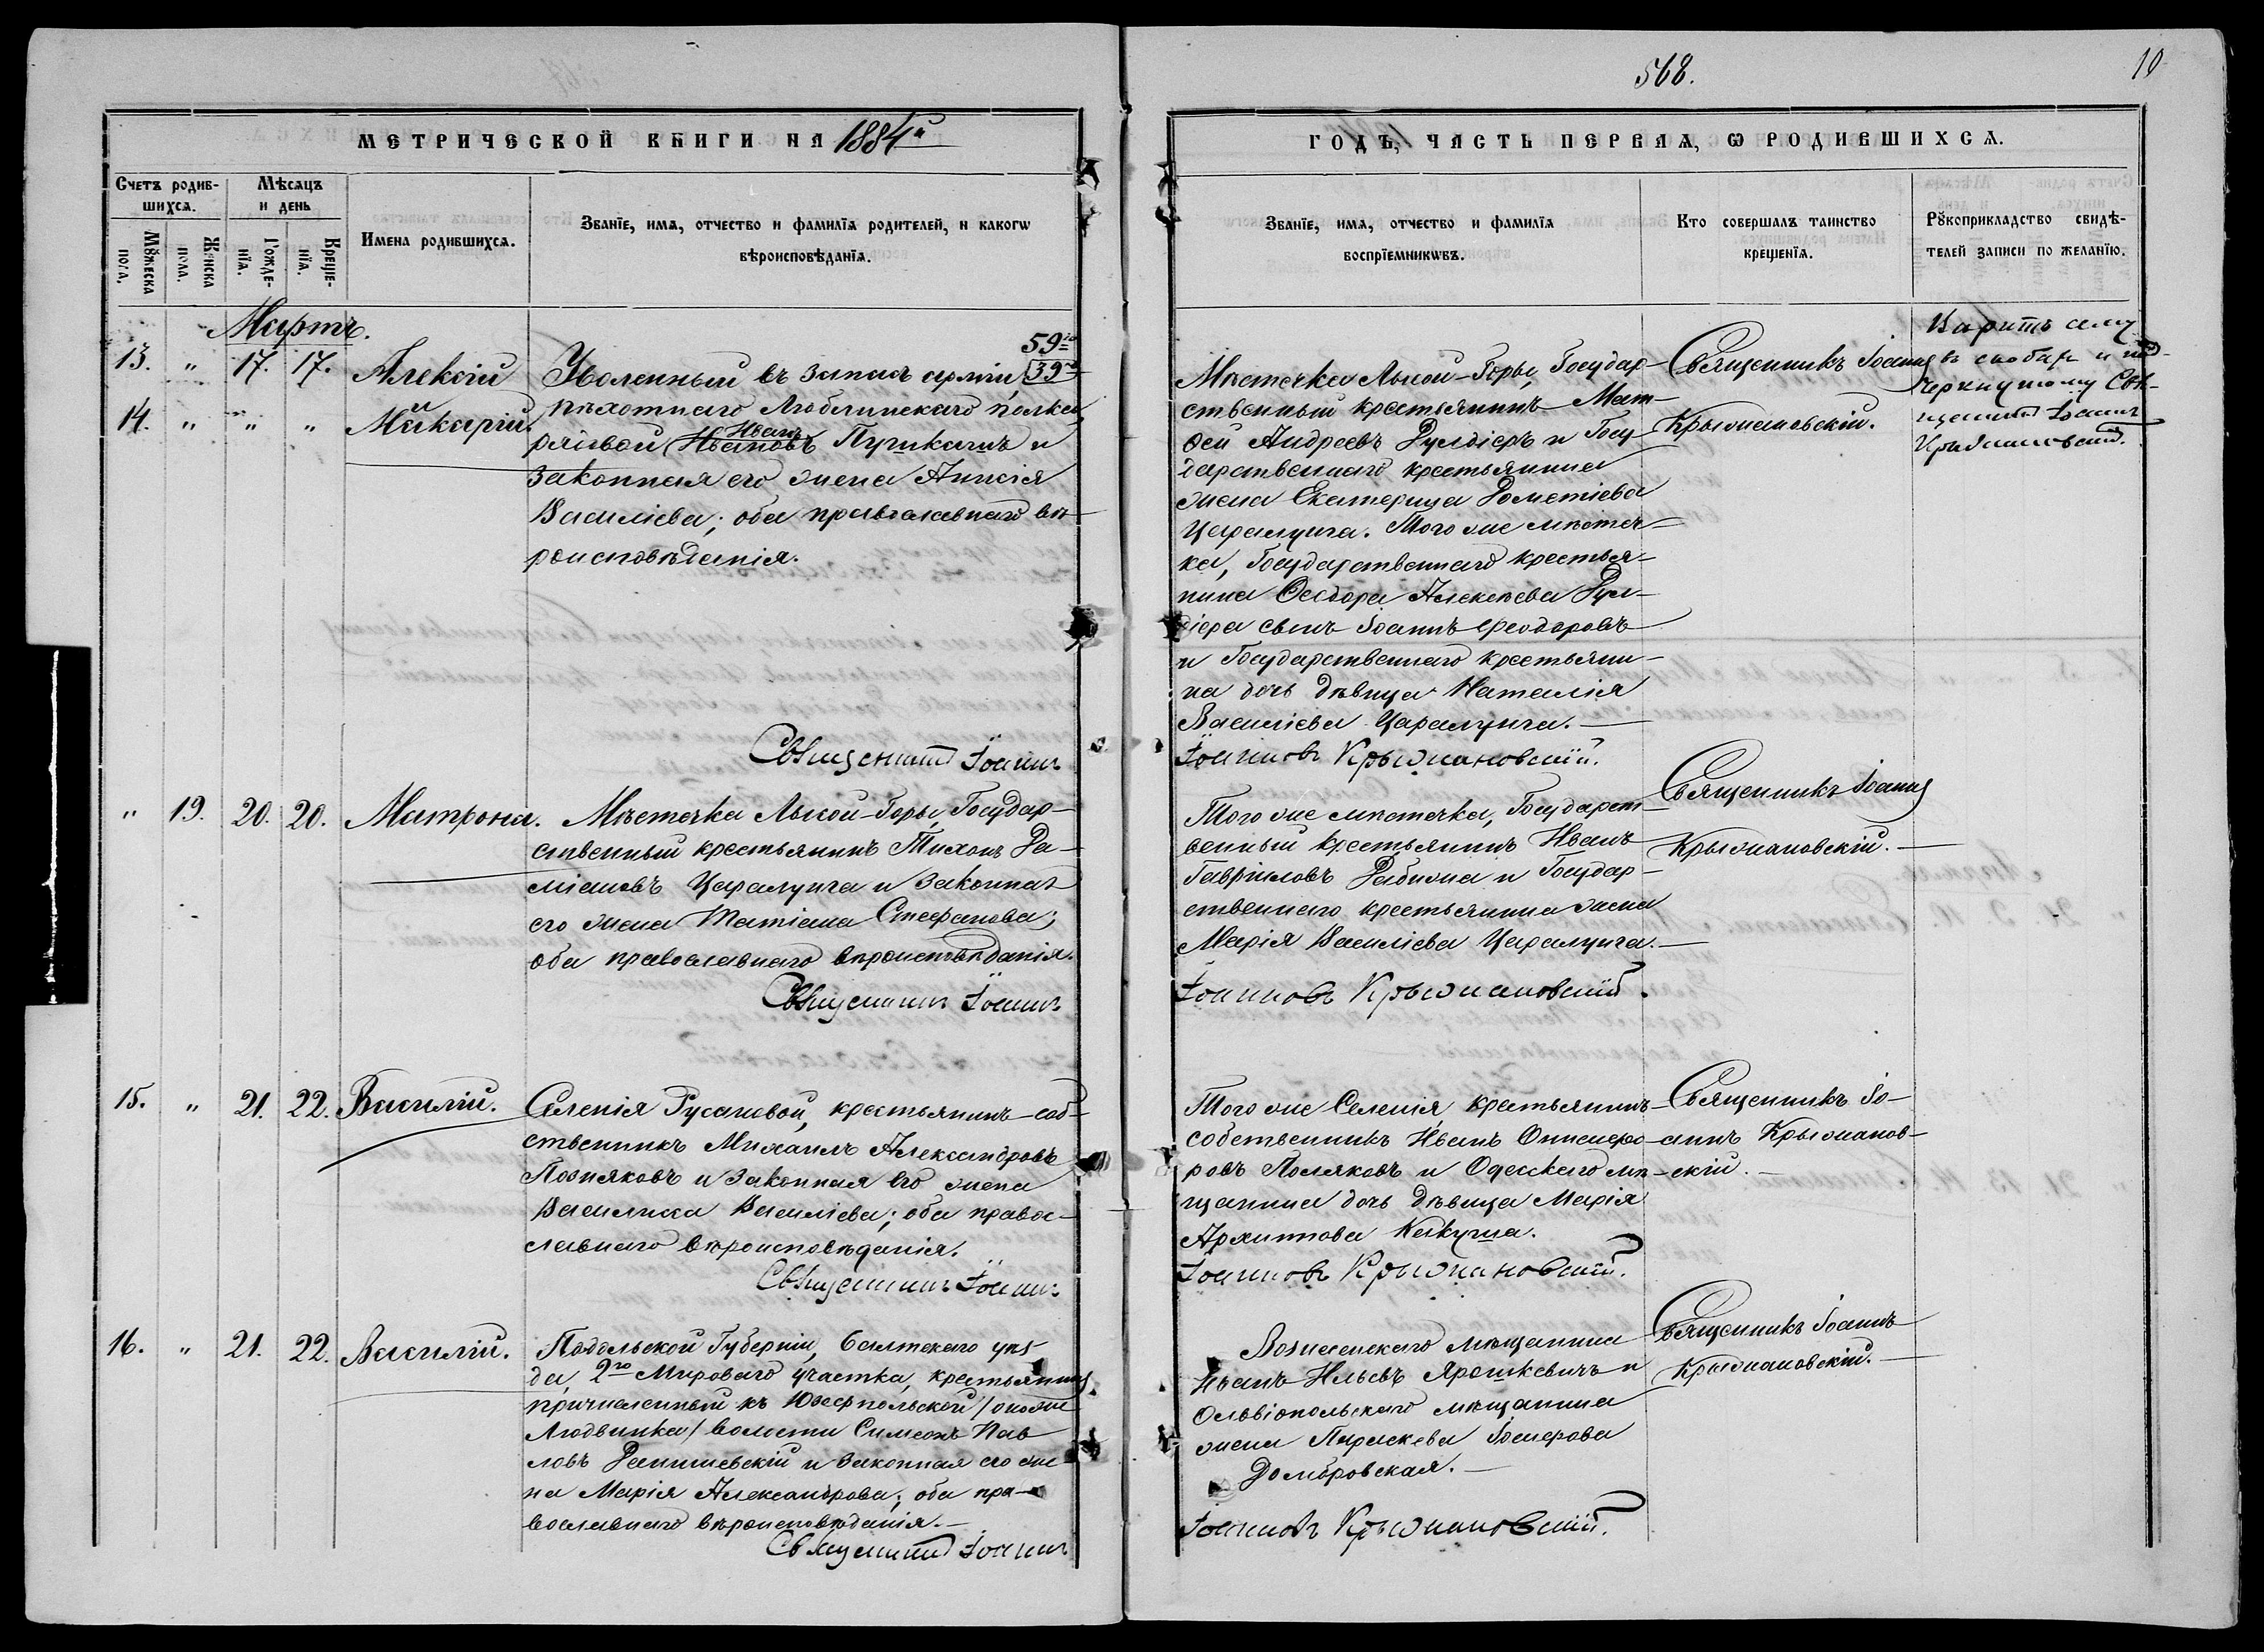 568.
10
МЕТРИЧЕСКОЙ КНИГИ НА 1884й
ГОДЪ, ЧАСТЬ ПЕРВАЯ, Ѡ РОДИВШИХСЯ.
Счетъ родив-
шихся.
Мѣсяцъ
и день
Мꙋжеска
пола.
Женска
пола.
Рожде-
нїя.
Креще-
нїя.
Имена родившихся.
Званїе, имя, отчество и фамилїя родителей, и какогѡ
вѣроисповѣданїя.
Званїе, имя, отчество и фамилїя
воспрїемникѡвъ.
Кто совершалъ таинство
крещенїя.
Рꙋкоприкладство свидѣ-
телей записи по желанїю.
Мартъ.
13. " 17. 17. Алексій
14. " " " Макарій
59го
Уволенный въ запасъ арміи, 39го
пѣхотнаго Люблинскаго полка
рядовой (Ивановъ Иванъ Пушкашъ и
законная его жена Анисія
Василіева; оба православнаго вѣ-
роисповѣданія.
Священникъ Іоаннъ
Мѣстечка Лысой-Горы, Государ-
ственный крестьянинъ Мат-
ѳей Андреевъ Рулдіеръ и Госу-
дарственнаго крестьянина
жена Екатерина
Царалунга. Того же мѣстеч-
ка, Государственнаго крестья-
нина Ѳеодора Алексѣева Рул-
діера сынъ Іоаннъ Ѳеодоровъ
и Государственнаго крестьяни-
на дочь дѣвица Наталія
Василіева Царалунга.
Іоанновъ Крыжановскій.
Священникъ Іоаннъ
Крыжановскій.
въ скобахъ и под-
черкнутому Свя-
щенникъ Іоаннъ
Крыжановскій.
" 19. 20. 20. Матрона.
Мѣстечка Лысой-Горы, Государ-
ственный крестьянинъ Тихонъ Да-
міановъ Царалунга и законная
его жена Татіана Стефанова;
оба православнаго вѣроисповѣданія.
Священникъ Іоаннъ
Того же мѣстечка, Государст-
венный крестьянинъ Иванъ
Гавриловъ и Государ-
ственнаго крестьянина жена
Марія Василіева Царалунга.
Іоанновъ Крыжановскій.
Священникъ Іоаннъ
Крыжановскій.
15. " 21. 22. Василій.
Селенія Русановой, крестьянинъ-соб-
ственникъ Михаилъ Александровъ
Позняковъ и законная его жена
Василиса Василіева; оба право-
славнаго вѣроисповѣданія.
Священникъ Іоаннъ
Того же Селенія крестьянинъ-
собственникъ Иванъ Онисифо-
ровъ Поляковъ и Одесскаго мѣ-
щанина дочь дѣвица Марія
Архиппова Кикуша.
Іоанновъ Крыжановскій.
Священникъ Іо-
аннъ Крыжанов-
скій.
16. " 21. 22. Василій.
Подольской Губерніи, Балтскаго уѣз-
да, 2го Мироваго участка, крестьянинъ
причисленный къ Юзефпольской /она же
Людвинка/ волости Симеонъ Пав-
ловъ и законная его же-
на Марія Александрова; оба пра-
вославнаго вѣроисповѣданія.
Священникъ Іоаннъ
Вознесенскаго мѣщанина
Иванъ Ильевъ Ярошкевичъ и
Ольвіопольскаго мѣщанина
жена Параскева Іосифова
Домбровская.
Іоанновъ Крыжановскій.
Священникъ Іоаннъ
Крыжановскій.